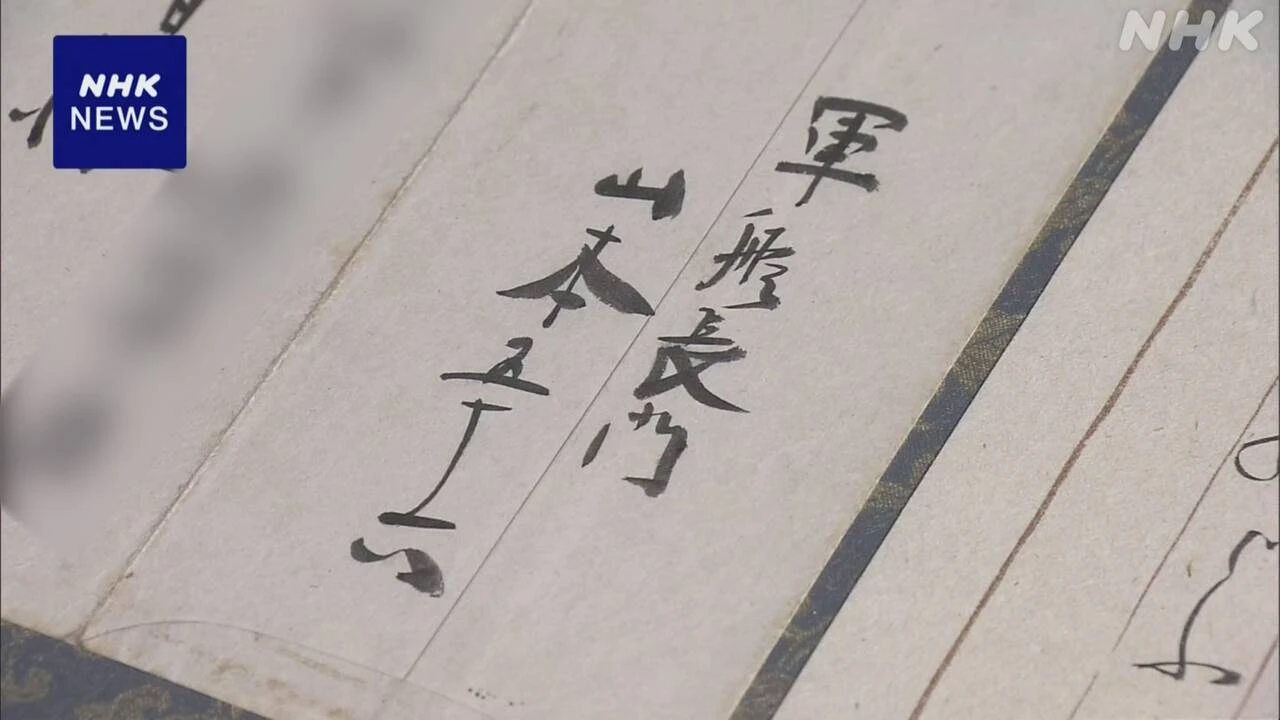 NHK
NEWS
NHK
軍艦長門
山本五十六